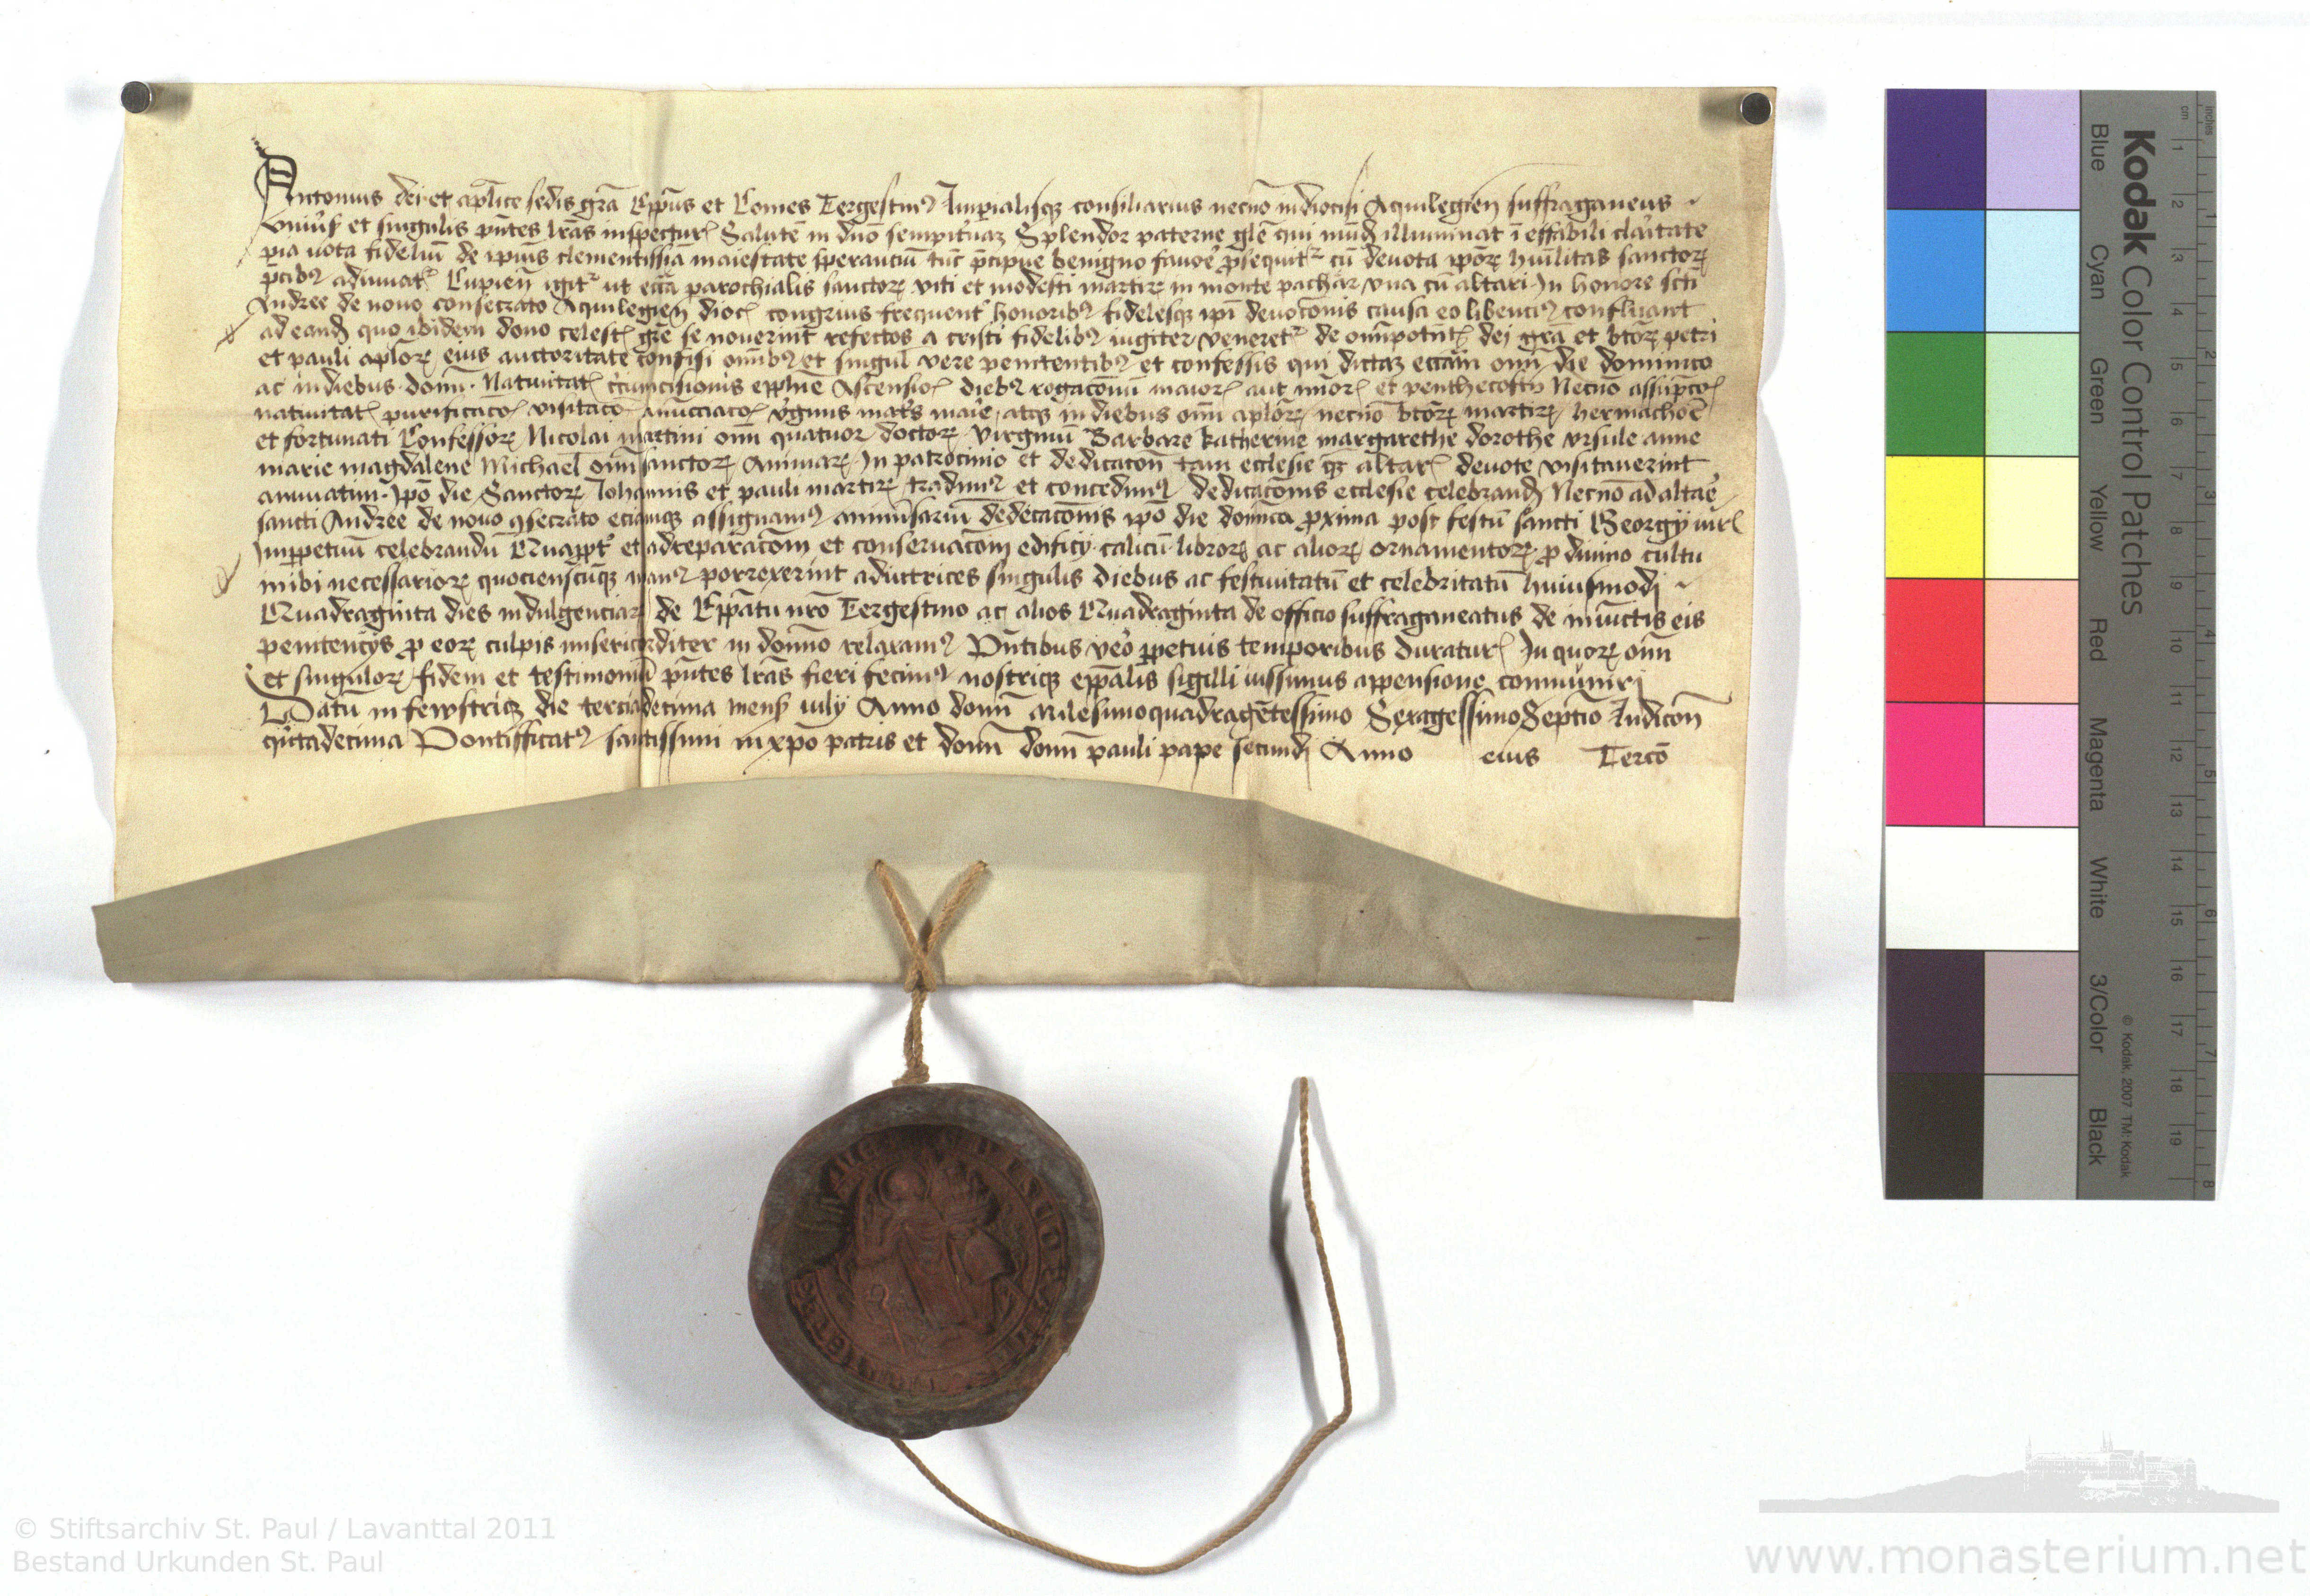 Antonius dei et aplice sedis gra Epus et Comes Tergestin Imperialisqz consiliarius necno in diocisi Aquilegien suffraganeus
Univs et singulis pntes lras inspectur Salute in dno sempitnaz Splendor paterne gle qui mud illuminat i effabili claitate
pia uota fideliu de ipius clementissia maiestate sperauciu tuc pcipue benigno fauoe psequit cu deuota ipor huilitas sanctor
pcibz adiuuat Cupien igit ut eccia parochialis sanctor viti et modesti martir in monte pachar vna cu altari In honore scti
Andree de nouo consecrato Aquilegien dioc congruis frequent honoribz fidelesqz ipi deuocois causa eo libenci confluant
ad eand quo ibidem dono celest gre se nouerint refectos a cristi fidelibz iugiter veneret de omipotet dei gra et btor petri
et pauli aplor eius auctoritate confisi omibz et singul vere penitentibz et confessis qui dictaz ecciam omi die dominico
ac in diebus domi Natiuitat circumcisionis epphie Ascensio diebz rogacoum maior aut mior et penthecosty Necno assupco
natiuitat purificaco visitaco anucciaco vginis matis maie atqz in diebus omi aplor necno btor martir hermachoe
et fortunati Confessor Nicolai martini omi quatuor doctor virginu Barbare katherine margarethe dorothe vrsule anne
marie magdalene Michael omi sanctor Animar In patrocinio et dedicacon tam ecclesie qz altar deuote visitauerint
annuatim Ipo die Sanctor Johannis et pauli martir tradim et concedim dedicacois ecclesie celebrand Necno ad altae
sancti Andree de nouo 9secrato eciamqz assignam anniusariu dedecacois ipo die domica pxima post festu sancti Georgy mrl
Imppetuu celebrandu Quappt et ad reparacom et conseruacom edificy calicu libror ac alior ornamentor p diuino cultu
inibi necessarior quocienscuqz man porrexerint adiutrices singulis diebus ac festiuitatu et celebritatu huiusmodi
Quadraginta dies indulgenciar de Eppatu nro Tergestino ac alios Quadraginta de officio suffraganeatus de iniuctis eis
penitencys p eor culpis misericorditer in domino relaxam Pntibus veo ppetuis temporibus duratur In quor omi
et singulor fidem et testimoniu pntes lras fieri fecim nostriqz eppalis sigilli iussimus appensione comuniri
Datu in fewstricz die terciadecima mens iuly Anno domi milesimoquadragetessimo Sexagessimo Septio Indicon
qitadecima Pontifficat santissimi in xpo patris et domi domi pauli pape secundi Anno eius Tercio
Kodak Color Control Patches
Blue Cyan Green Yellow Red Magenta White 3/Color Black
© Kodak, 2007 TM: Kodak
inches
cm
1 2 3 4 5 6 7 8 9 10 11 12 13 14 15 16 17 18 19
1 2 3 4 5 6 7 8
© Stiftsarchiv St. Paul / Lavanttal 2011
Bestand Urkunden St. Paul
www.monasterium.net